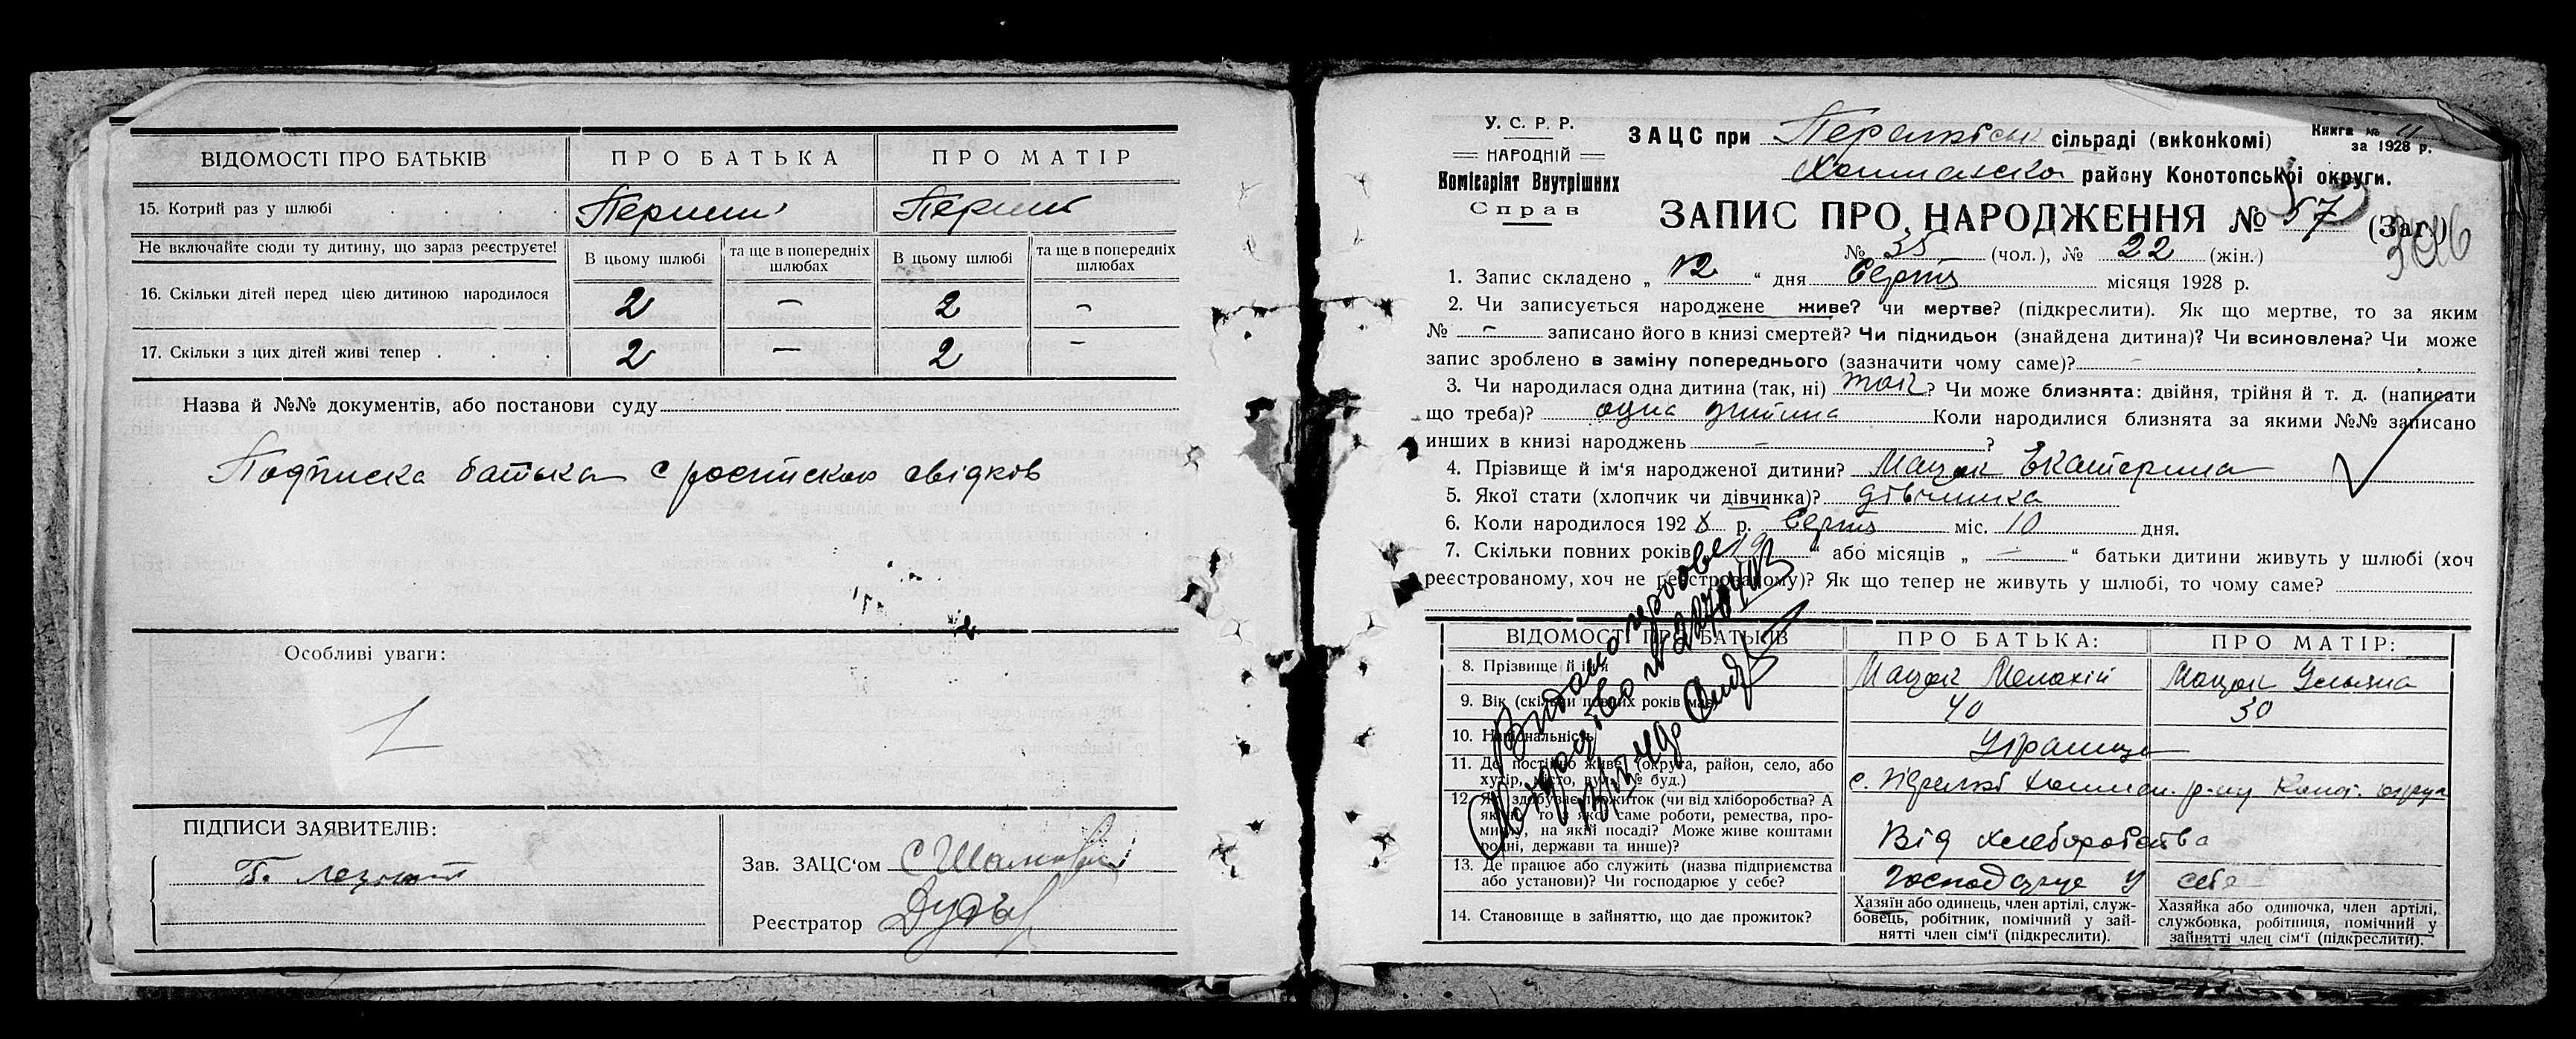 ВІДОМОСТІ ПРО БАТЬКІВ ПРО БАТЬКА ПРО МАТІР
15. Котрий раз у шлюбі
Не включайте сюди ту дитину, що зараз реєструєте! В цьому шлюбі та ще в попередніх шлюбах В цьому шлюбі та ще в попередніх шлюбах
16. Скільки дітей перед цією дитиною народилося 2 – 2 –
17. Скільки з цих дітей живі тепер 2 – 2 –
Назва й №№ документів, або постанови суду
Подписка батька с роспискою свідків
Особливі уваги:
ПІДПИСИ ЗАЯВИТЕЛІВ:
Зав. ЗАЦС'ом
Реєстратор
У. С. Р. Р.
НАРОДНІЙ
Комісаріят Внутрішних
Справ
ЗАЦС при сільраді (виконкомі)
району Конотопської округи.
Книга №
за 1928 р.
ЗАПИС ПРО НАРОДЖЕННЯ № 57 (Заг.)
№ 35 (чол.), № 22 (жін.)
1. Запис складено „ 12 “ дня Серпня місяця 1928 р.
2. Чи записується народжене живе? чи мертве? (підкреслити). Як що мертве, то за яким
№ – записано його в книзі смертей? Чи підкидьок (знайдена дитина)? Чи всиновлена? Чи може
запис зроблено в заміну попереднього (зазначити чому саме)? –
3. Чи народилася одна дитина (так, ні) так? Чи може близнята: двійня, трійня й т. д. (написати
що треба)? одна Коли народилися близнята за якими №№ записано
инших в книзі народжень – ?
4. Прізвище й ім'я народженої дитини? Мацак Екатерина
5. Якої стати (хлопчик чи дівчинка)? дівчинка
6. Коли народилося 1928 р. Серпня міс. 10 дня.
7. Скільки повних років 9 “ або місяців „ – “ батьки дитини живуть у шлюбі (хоч
реєстрованому, хоч не реєстрованому)? Як що тепер не живуть у шлюбі, то чому саме?
ВІДОМОСТІ ПРО БАТЬКІВ ПРО БАТЬКА: ПРО МАТІР:
8. Прізвище й ім'я Мацак Малахій Мацак Ульяна
9. Вік (скільки повних років має) 40 30
10. Національність Українці
11. Де постійно живе (округа, район, село, або
хутір, місто, вул. № буд.)
12. Як здобуває прожиток (чи від хліборобства? А
як ні, то з якої саме роботи, ремества, про-
мислу, на якій посаді? Може живе коштами
родні, держави та инше)? Від хлеборобства
13. Де працює або служить (назва підприємства
або установи)? Чи господарює у себе? Господарує у себе
14. Становище в зайняттю, що дає прожиток?
Хазяїн або одинець, член артілі, служ-
бовець, робітник, помічний у зай-
нятті член сім'ї (підкреслити).
Хазяйка або одиночка, член артілі,
службовка, робітниця, помічний у
зайнятті член сім'ї (підкреслити).